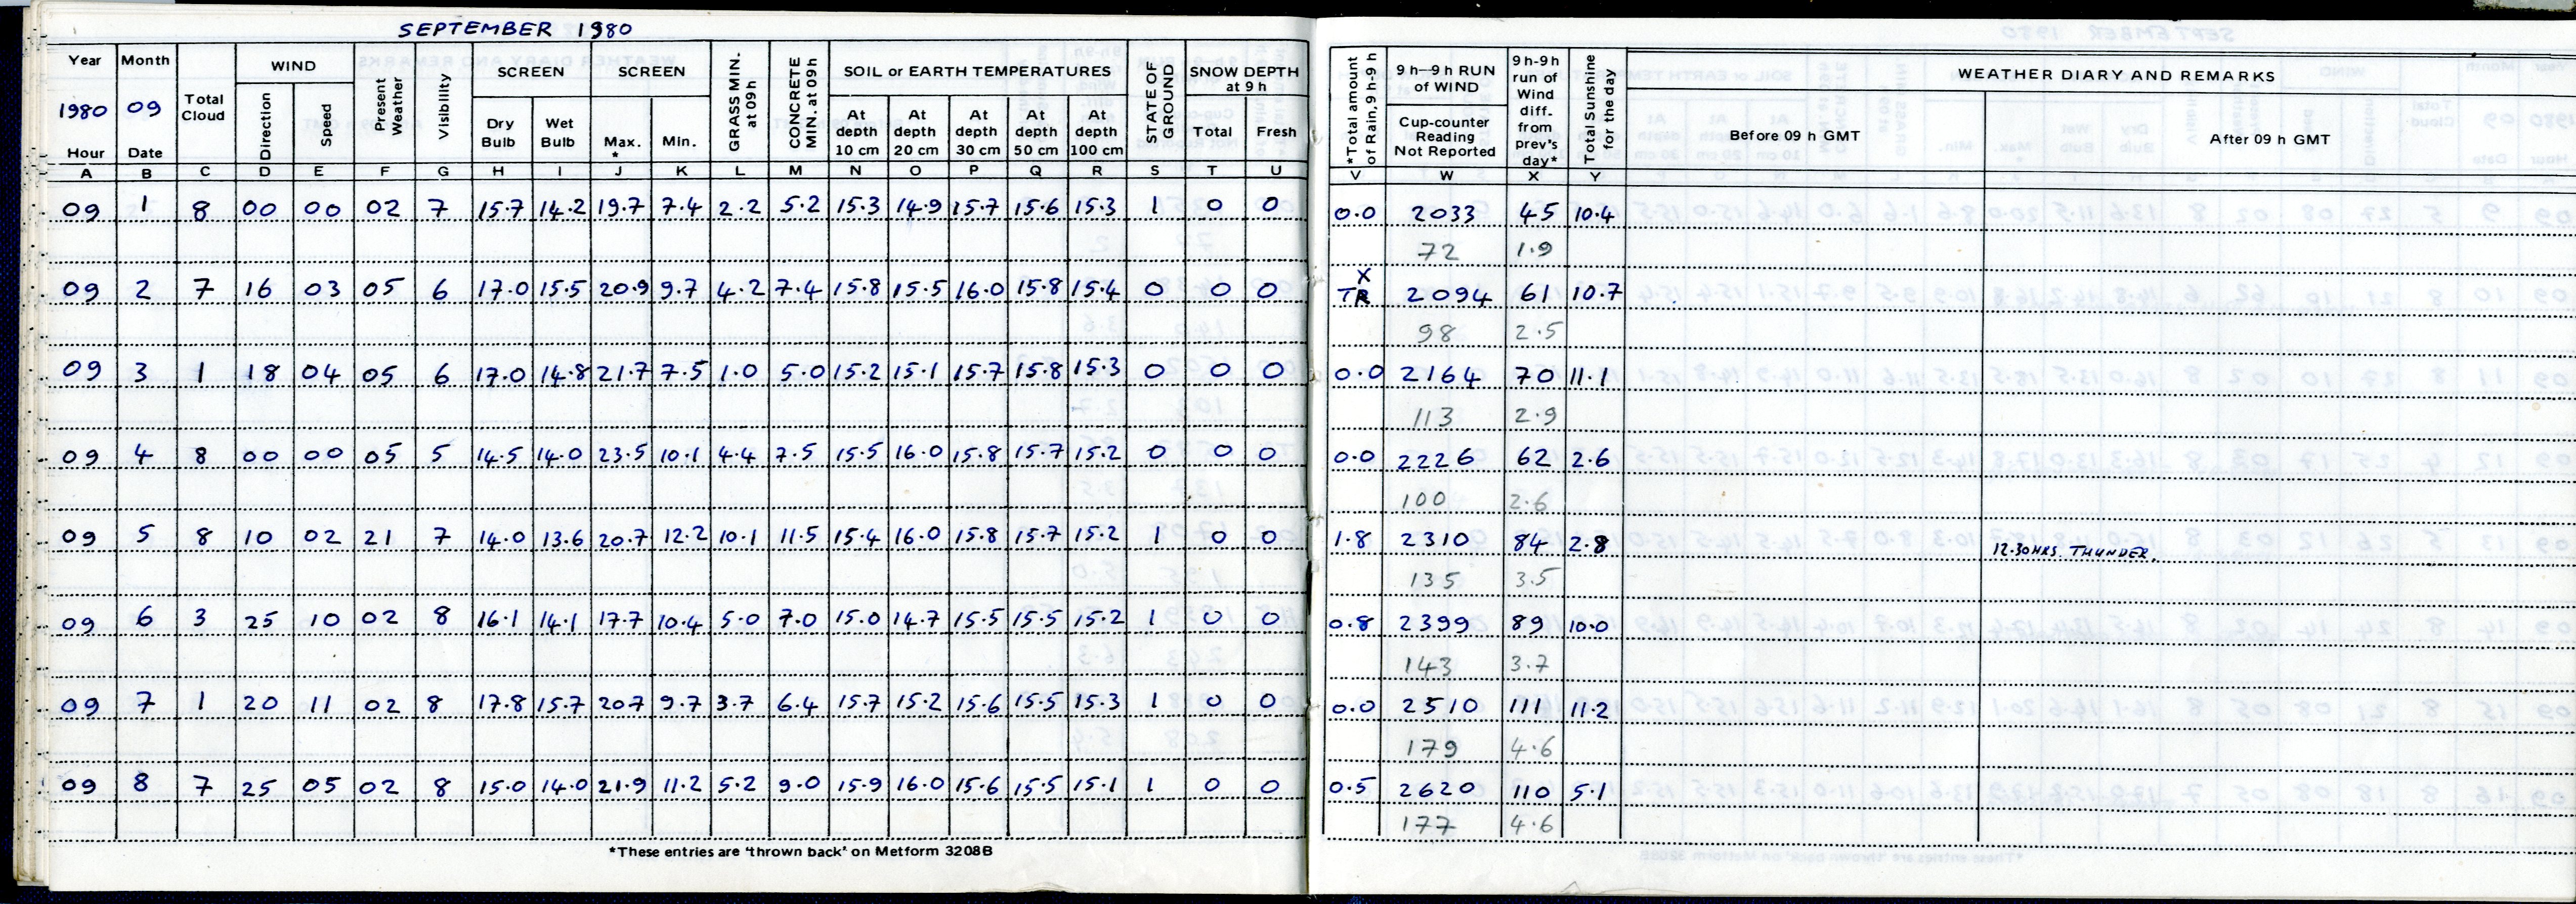 SEPTEMBER 1980
Year Month WIND SCREEN SCREEN GRASS MIN. at 09h CONCRETE MIN. at 09h SOIL or EARTH TEMPERATURES STATE OF GROUND SNOW DEPTH at 9 h
1980 09 Total Cloud Direction Speed Present Weather Visibility Dry Bulb Wet Bulb Max. * Min. At depth 10 cm At depth 20 cm At depth 30 cm At depth 50 cm At depth 100 cm Total Fresh
Hour Date
A B C D E F G H I J K L M N O P Q R S T U
09 1 8 00 00 02 7 15.7 14.2 19.7 7.4 2.2 5.2 15.3 14.9 15.7 15.6 15.3 1 0 0
09 2 7 16 03 05 6 17.0 15.5 20.9 9.7 4.2 7.4 15.8 15.5 16.0 15.8 15.4 0 0 0
09 3 1 18 04 05 6 17.0 14.8 21.7 7.5 1.0 5.0 15.2 15.1 15.7 15.8 15.3 0 0 0
09 4 8 00 00 05 5 14.5 14.0 23.5 10.1 4.4 7.5 15.5 16.0 15.8 15.7 15.2 0 0 0
09 5 8 10 02 21 7 14.0 13.6 20.7 12.2 10.1 11.5 15.4 16.0 15.8 15.7 15.2 1 0 0
09 6 3 25 10 02 8 16.1 14.1 17.7 10.4 5.0 7.0 15.0 14.7 15.5 15.5 15.2 1 0 0
09 7 1 20 11 02 8 17.8 15.7 20.7 9.7 3.7 6.4 15.7 15.2 15.6 15.5 15.3 1 0 0
09 8 7 25 05 02 8 15.0 14.0 21.9 11.2 5.2 9.0 15.9 16.0 15.6 15.5 15.1 1 0 0
*These entries are 'thrown back' on Metform 3208B
*Total amount of Rain, 9 h-9 h 9 h-9 h RUN of WIND 9 h-9 h run of Wind diff. from prev's day* Total Sunshine for the day WEATHER DIARY AND REMARKS
Cup-counter Reading Not Reported Before 09 h GMT After 09 h GMT
V W X Y
0.0 2033 45 10.4
72 1.9
X
TR 2094 61 10.7
98 2.5
0.0 2164 70 11.1
113 2.9
0.0 2226 62 2.6
100 2.6
1.8 2310 84 2.8 12.30HRS. THUNDER.
135 3.5
0.8 2399 89 10.0
143 3.7
0.0 2510 111 11.2
179 4.6
0.5 2620 110 5.1
177 4.6